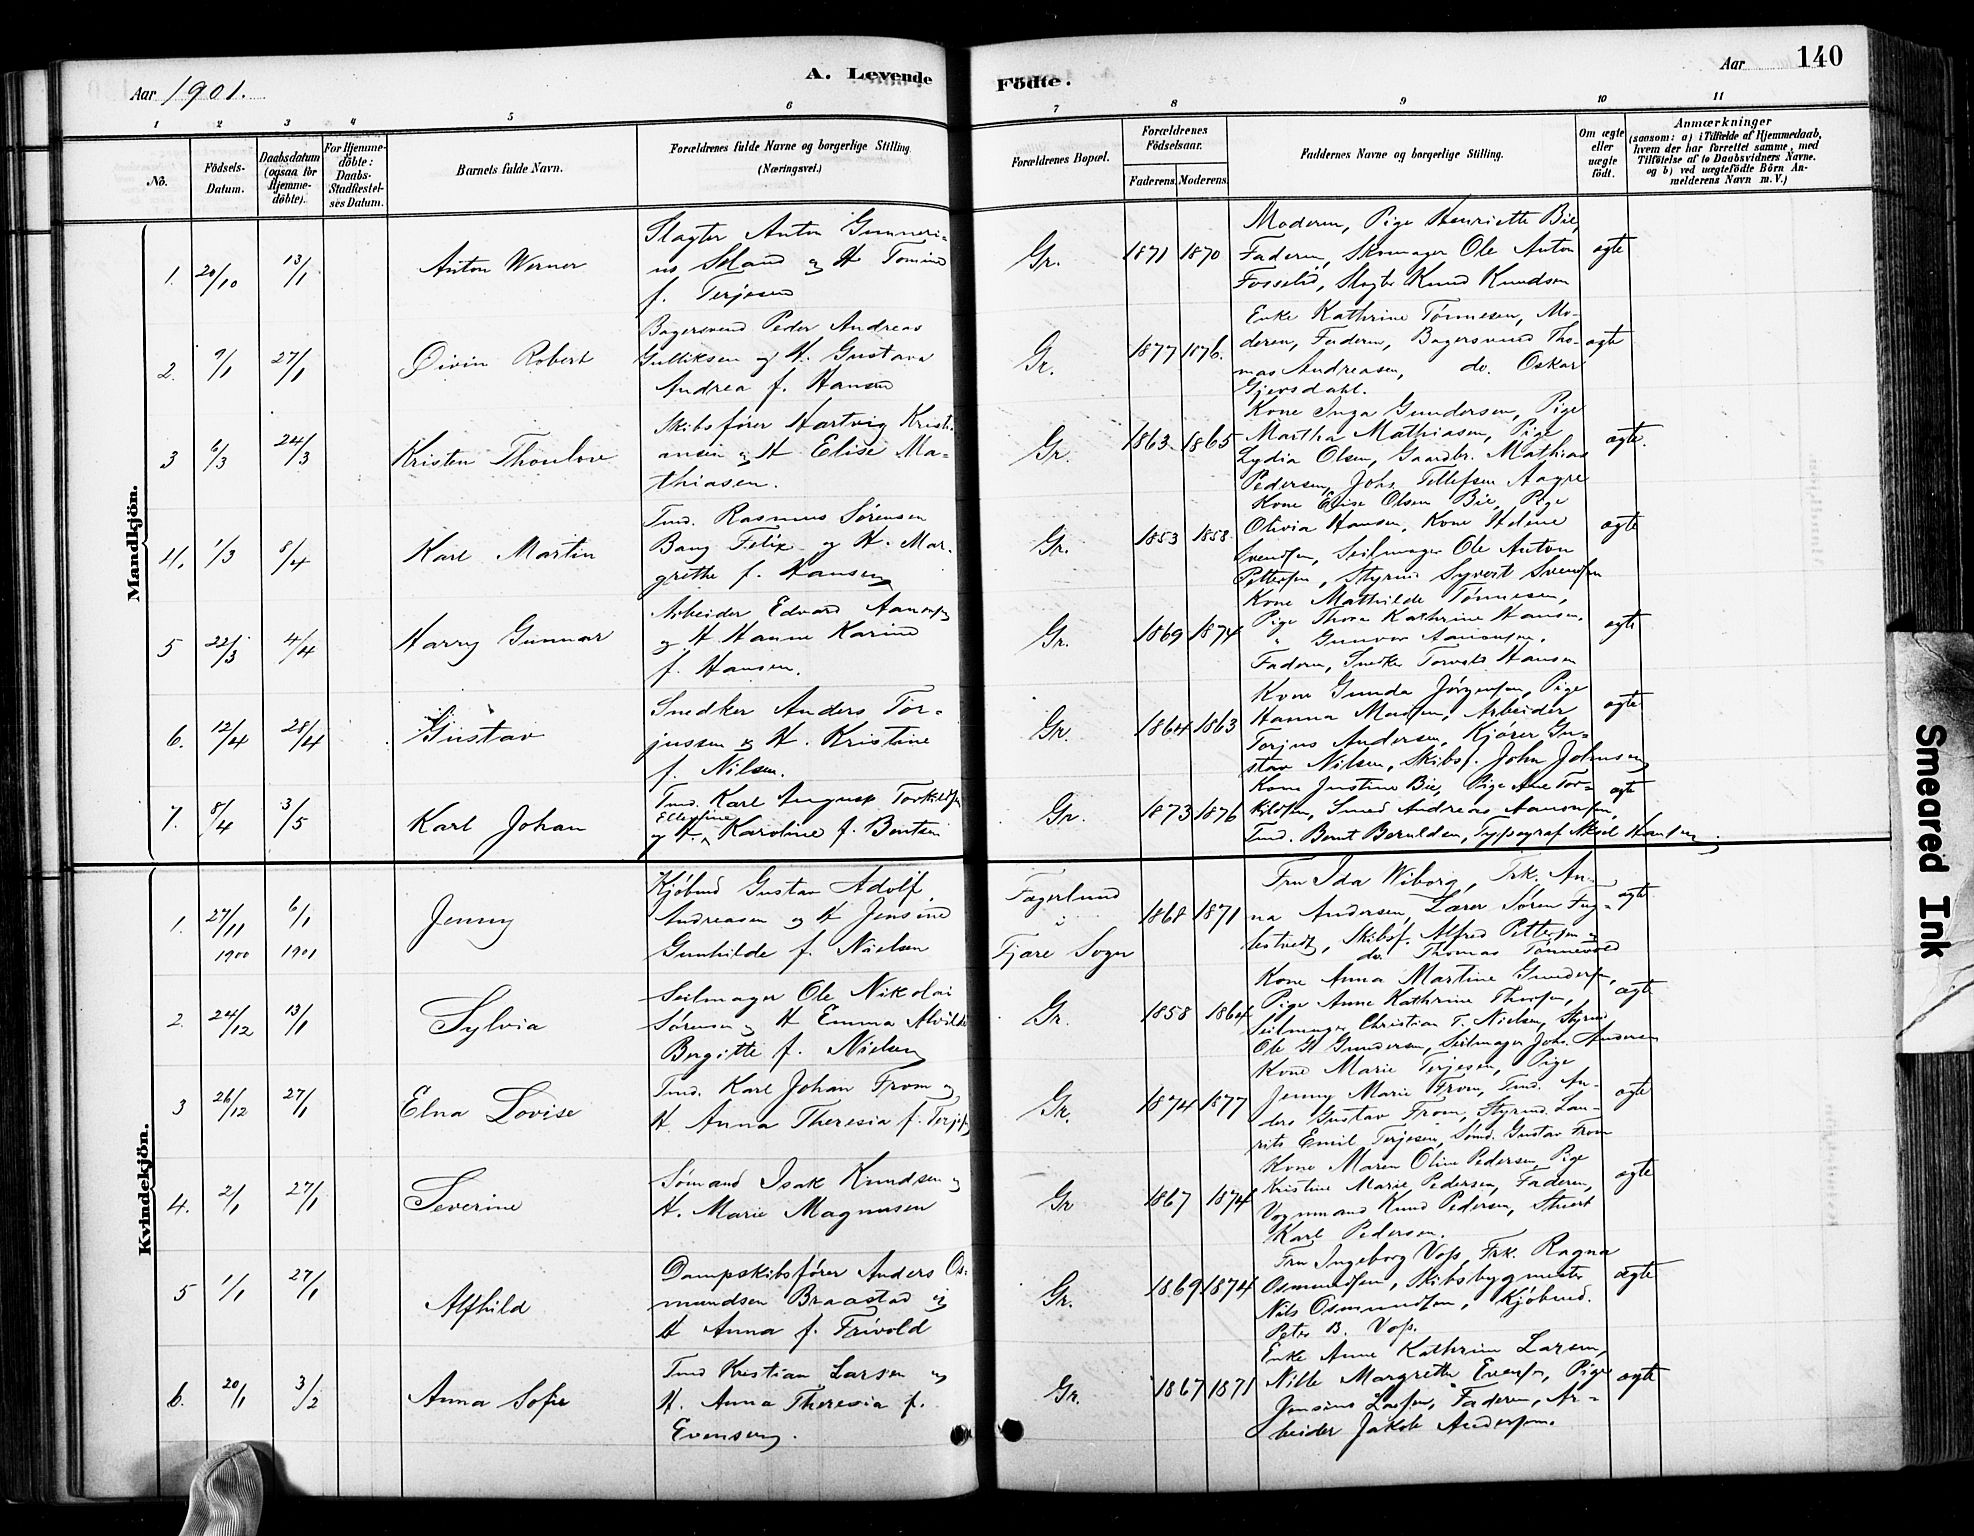 Aar 1901.
A. Levende
Födte.
Aar
140
1 2 3 4 5 6 7 8 9 10 11
No.
Födsels-
Datum.
Daabsdatum
(ogsaa for
Hjemme-
döbte).
For Hjemme-
döbte:
Daabs-
Stadfæstel-
ses Datum.
Barnets fulde Navn.
Forældrenes fulde Navne og borgerlige Stilling
(Næringsvei.)
Forældrenes Bopæl.
Forældrenes
Födselsaar.
Faderens. Moderens.
Faddernes Navne og borgerlige Stilling.
Om ægte
eller
uægte
födt.
Anmærkninger
(saasom: a) i Tilfælde af Hjemmedaab,
hvem der har forrettet samme, med
Tilföielse af to Daabsvidners Navne.
og b) ved uægtefödte Börn An-
melderens Navn m. V.)
Mandkjön.
1. 20/10 13/1
Anton Werner
Slagter Anton Gunneri-
us Seland og H Tomine
f. Terjesen
Gr. 1871 1870
Moderen, Pige Henriette Bie,
Faderen, Skomager Ole Anton
Fosselid, Slagter Knud Knudsen
ægte
2. 9/1 27/1
Öivin Robert
Bagersvend Peder Andreas
Gulliksen og H. Gustava
Andrea f. Hansen
Gr. 1877 1876.
Enke Kathrine Tönnesen, Mo-
deren, Faderen, Bagersvend Tho-
mas Andreasen, do. Oskar
Gjersdahl.
ægte
3 6/3 24/3
Kristen Thonlow
Skibsförer Hartvig Kristi-
ansen og H Elise Ma-
thiasen.
Gr. 1863 1865
Kone Inga Gundersen, Pige
Martha Mathiasen, Pige
Lydia Olsen, Gaardbr. Mathias
Pedersen, Johs Tellefsen Aagre
ægte.
4. 1/3 8/4
Karl Martin
Tmd. Rasmus Sörensen
Bang Felix og H. Mar-
grethe f. Hansen
Gr. 1853 1858
Kone Elise Olsen Bie, Pige
Olivia Hansen, Kone Helene
Svendsen, Seilmager Ole Anton
Pettersen, Styrmd Syvert Svendsen
ægte
5 22/3 4/4
Harry Gunnar
Arbeider Edvard Aanonsen
og H. Hanne Karine
f. Hansen.
Gr. 1869 1874
Kone Mathilde Tönnesen,
Pige Thora Kathrine Hansen,
" Gunvor Aanonsen,
Faderen, Snedker Torvald Hansen
ægte
6. 12/4 28/4
Gustav
Snedker Anders Tor-
jussen og H. Kristine
f. Nilsen.
Gr. 1864 1863
Kone Gunda Jörgensen, Pige
Hanna Madsen, Arbeider
Torjus Andersen, Kjörer Gu-
stav Nilsen, Skibsf. John Johnsen
ægte
7. 8/4 3/5
Karl Johan
Tmd. Karl August Torkildsen
og H. Karoline f. Bentsen
Gr. 1873 1876
Kone Justine Bie, Pige Ane Tor-
kildsen, Smed Andreas Aanonsen,
Tmd. Bernt Berulden, Typograf Aksel Hansen
ægte
Kvindekjön.
1. 27/11 1900 6/1 1901
Jenny
Kjöbmd Gustav Adolf
Andreasen og H Jensine
Gunhilde f. Nielsen
Fagerlund
i
Fjære Sogn
1868 1871
Fru Ida Wiborg, Frk. An-
na Andersen, Lærer Sören Fug-
lestvedt, Skibsf. Alfred Pettersen,
do. Thomas Tönnevold
ægte
2. 24/12 13/1
Sylvia
Seilmager Ole Nikolai
Sörensen og H Emma Alvilde
Bergitte f. Nielsen
Gr. 1858 1864
Kone Anna Martine Gundersen,
Pige Anne Kathrine Thorsen,
Seilmager Christian T. Nielsen, Styrmd
Ole H Gundersen, Seilmager Johs. Andersen
ægte
3 26/12 27/1
Elna Lovise
Tmd. Karl Johan From og
H. Anna Theresia f. Terjesen
Gr. 1874 1877
Kone Marie Terjesen, Pige
Jenny Marie From, Tmd. An-
ders Gustav From, Styrmd. Lau-
rits Emil Terjesen, Sömd. Gustav From
ægte
4. 2/1 27/1
Severine
Sömand Isak Knudsen og
H. Marie Magnusen
Gr 1867 1874
Kone Maren Oline Pedersen, Pige
Kristine Marie Pedersen, Faderen,
Vognmand Knud Pedersen, Stuert
Karl Pedersen.
ægte
5 1/1 27/1
Alfhild
Dampskibsförer Anders Os-
mundsen Braastad og
H Anna f. Frivold
Gr. 1869 1874
Fru Ingeborg Voss, Frk. Ragna
Osmundsen, Skibsbygmester
Nils Osmundsen, Kjöbmd.
Peter B. Voss.
ægte
6. 20/1 3/2
Anna Sofie
Tmd Kristian Larsen og
H. Anna Theresia f.
Evensen.
Gr. 1867 1871
Enke Anne Kathrine Larsen,
Nille Margrethe Evensen, Pige
Jensine Larsen, Faderen, Ar-
beider Jakob Andersen.
ægte
Smeared Ink